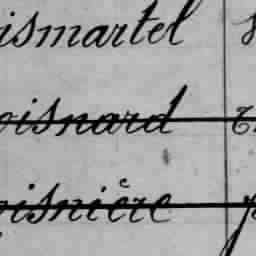 ismartel
oisnard
oisnière